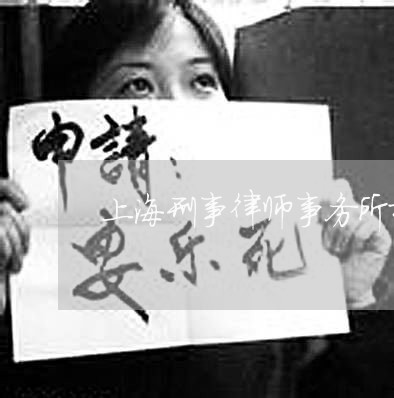 申請：
上海刑事律师事务所
安乐死